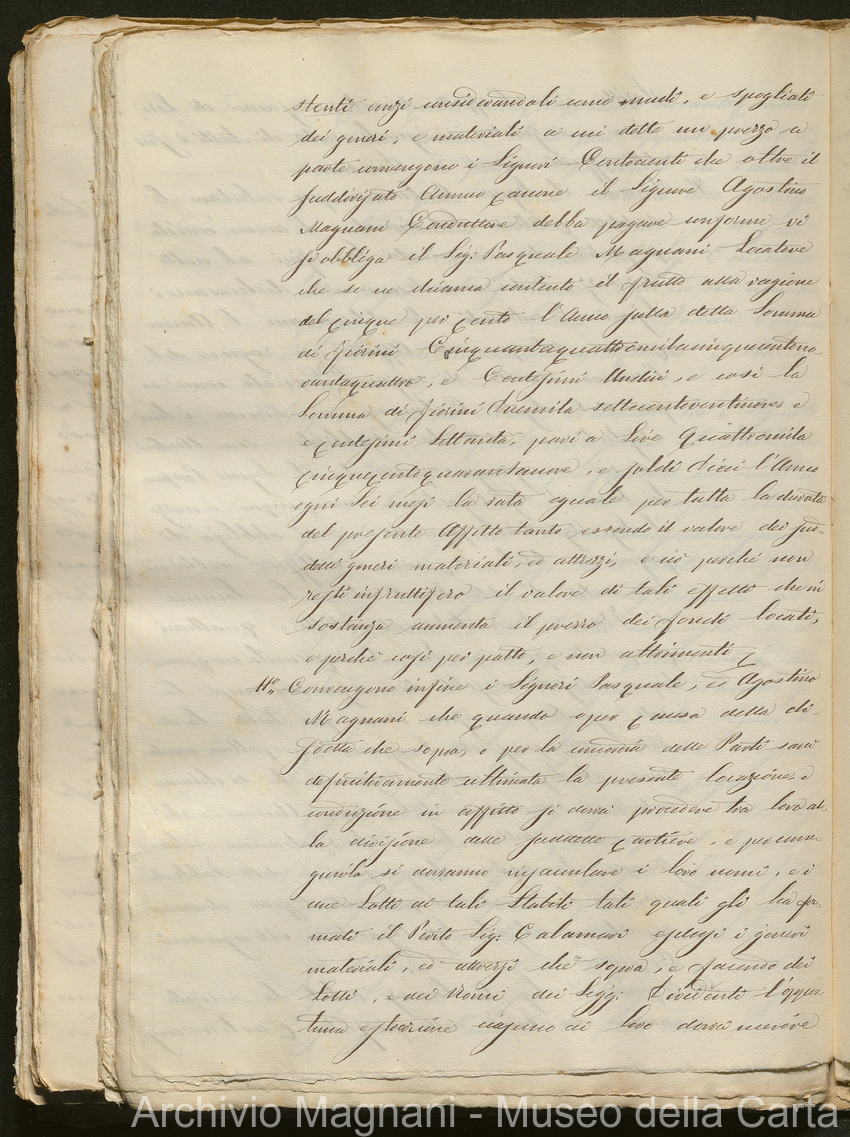 stenti anzi considerandoli come nudi, e spogliati
dei generi, e materiali a cui dette un prezzo a
parte convengono i Signori Contraenti che oltre il
suddivisato Annuo Canone il Signore Agostino
Magnani Conduttore debba pagare conforme vi
si obbliga il Sig: Pasquale Magnani Locatore
che se ne chiama contento il frutto alla ragione
del cinque per cento l'Anno sulla detta Somma
di fiorini Cinquantaquattromilacinquecentono-
vantaquattro, e Centesimi Undici, e così la
Somma di fiorini Duemila settecentoventinove e
e centesimi Settanta, pari a Lire Quattromila
cinquecentoquarantanove, e soldi dieci l'Anno
ogni sei mesi la rata eguale per tutta la durata
del presente Affitto tanto essendo il valore dei sud-
detti generi materiali, ed attrezzi, e ciò perché non
resti infruttifero il valore di tali effetti che in
sostanza aumenta il prezzo dei fondi locati,
e perché così per patto, e non altrimenti
11.° Convengono infine i Signori Pasquale, ed Agostino
Magnani che quando o per causa della di-
sdetta che sopra, o per la concordia delle Parti sarà
definitivamente ultimata la presente locazione e
conduzione in affitto si dovrà procedere tra loro al-
la divisione delle suddette Cartiere, e per conse-
guirla si dovranno i loro nomi, e i
due Lotti di tali Stabili tali quali gli ha for-
mati il Perito Sig: Calamari esclusi i generi
materiali, ed attrezzi che sopra, e facendo dei
Lotti, e dei Nomi dei Sigg: Dividenti l'oppor-
tuna estrazione ciascuno di loro dovrà ricevere
Archivio Magnani - Museo della Carta